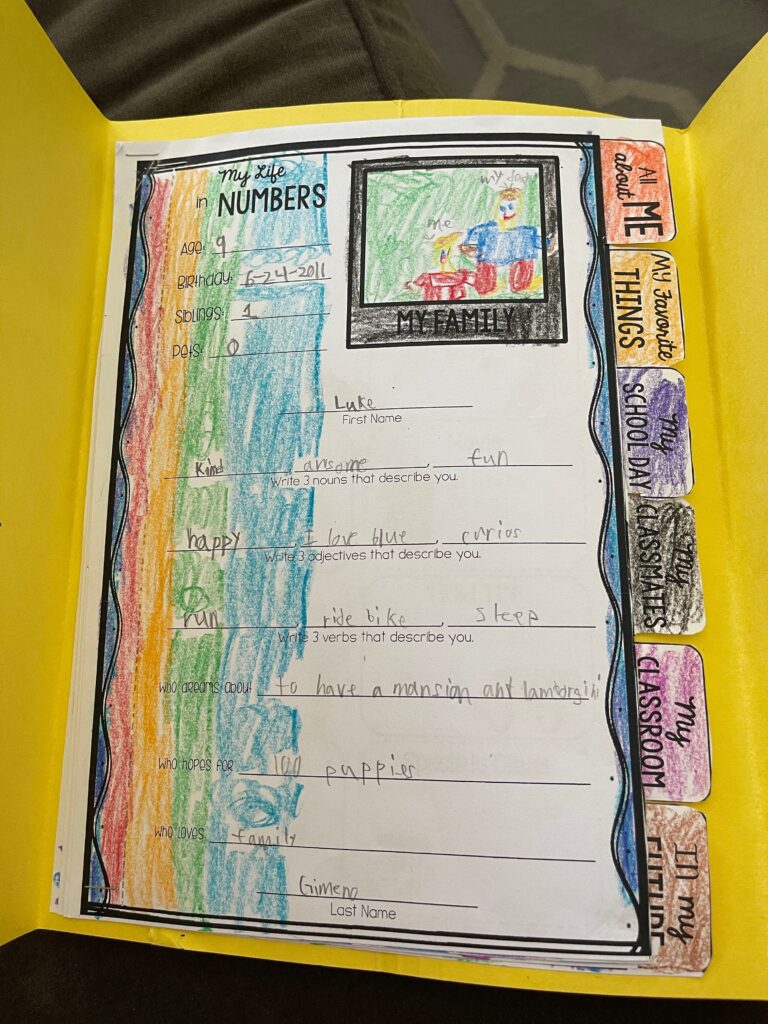 My Life
in NUMBERS
Age: 9
Birthday: 6-24-2011
Siblings: 1
Pets: 0
my dad
me
MY FAMILY
Luke
First Name
Kind, awsome, fun
Write 3 nouns that describe you.
happy, I love blue, curios
Write 3 adjectives that describe you.
run, ride bike, sleep
Write 3 verbs that describe you.
Who dreams about to have a mansion ant lamborgini
Who hopes for 100 puppies
Who loves family
Gimeno
Last Name
All about ME
My Favorite THINGS
My SCHOOL DAY
My CLASSMATES
My CLASSROOM
In my FUTURE